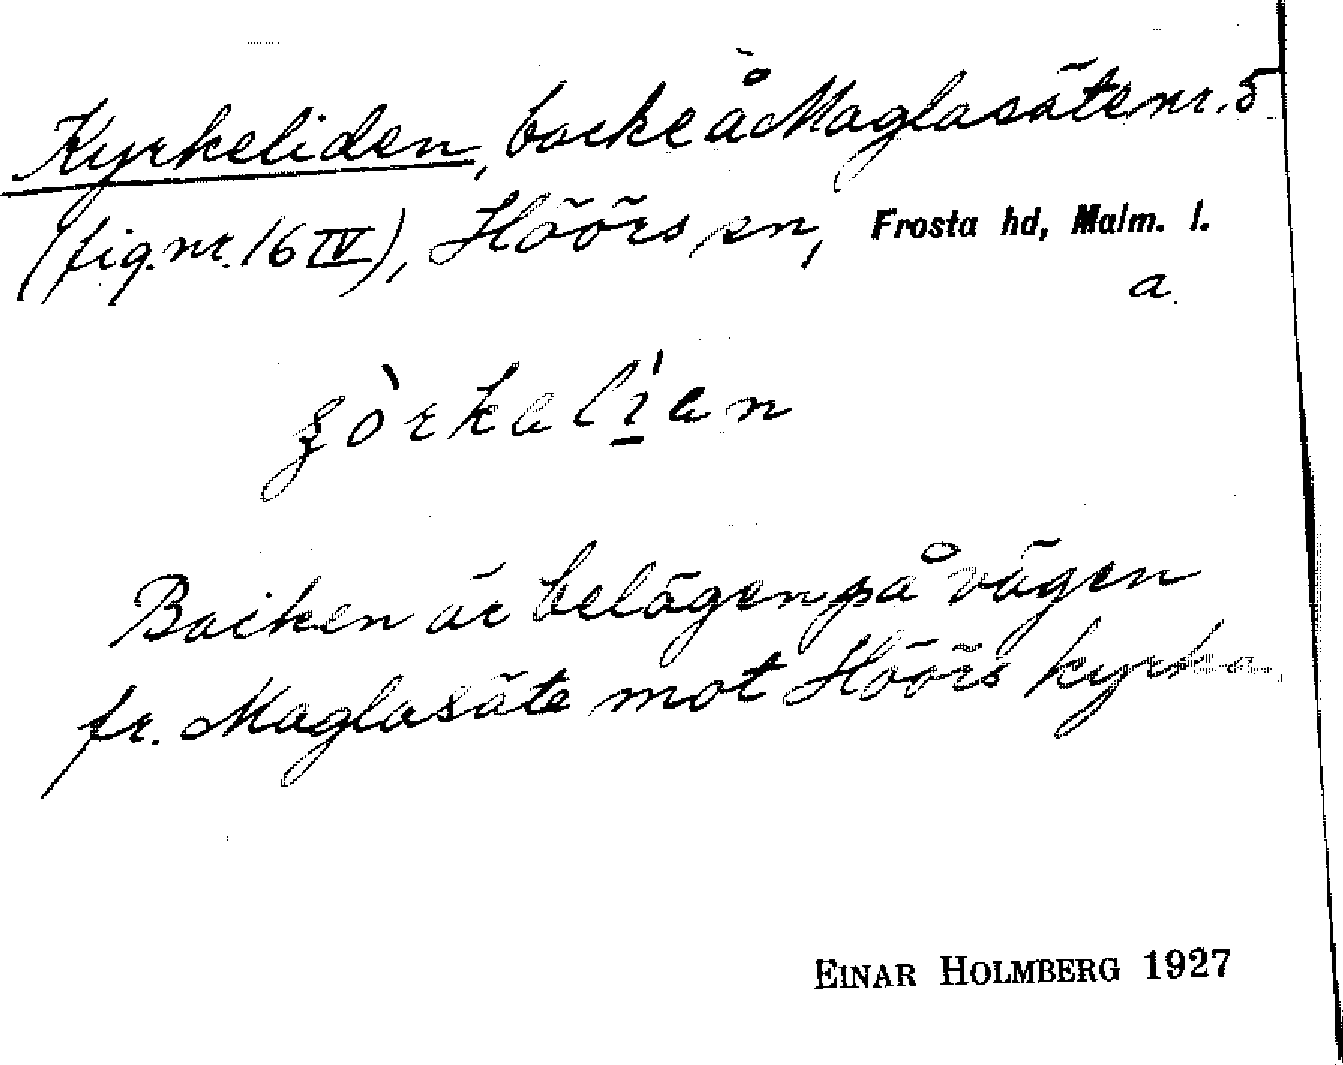 Kyrkeliden, backe å Maglasäte nr. 5
(fig. nr. 16 IV), Höörs sn, Frosta hd, Malm. l.
a.
Backen är belägen på vägen
fr. Maglasäte mot Höörs kyrka.
EINAR HOLMBERG 1927